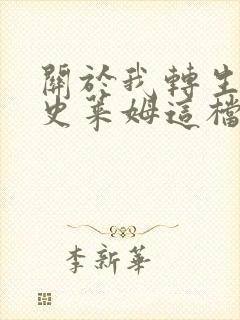 關於我轉生
史萊姆這檔
李新華